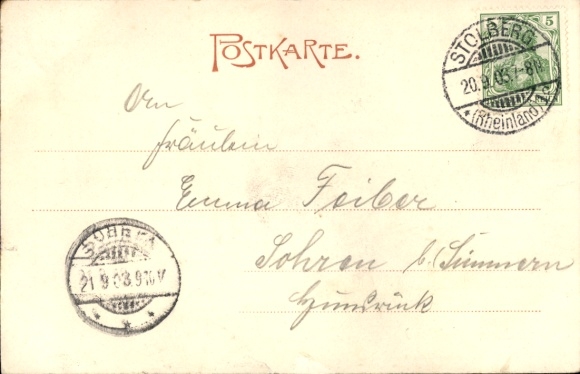 POSTKARTE.
5
STOLBERG
20.9.03.7-8N.
*(Rheinland)
An
Fräulein
Emma Faiber
Sohren b/Simmern
Hunsrück
SOHREN
21.9.03.9-10V